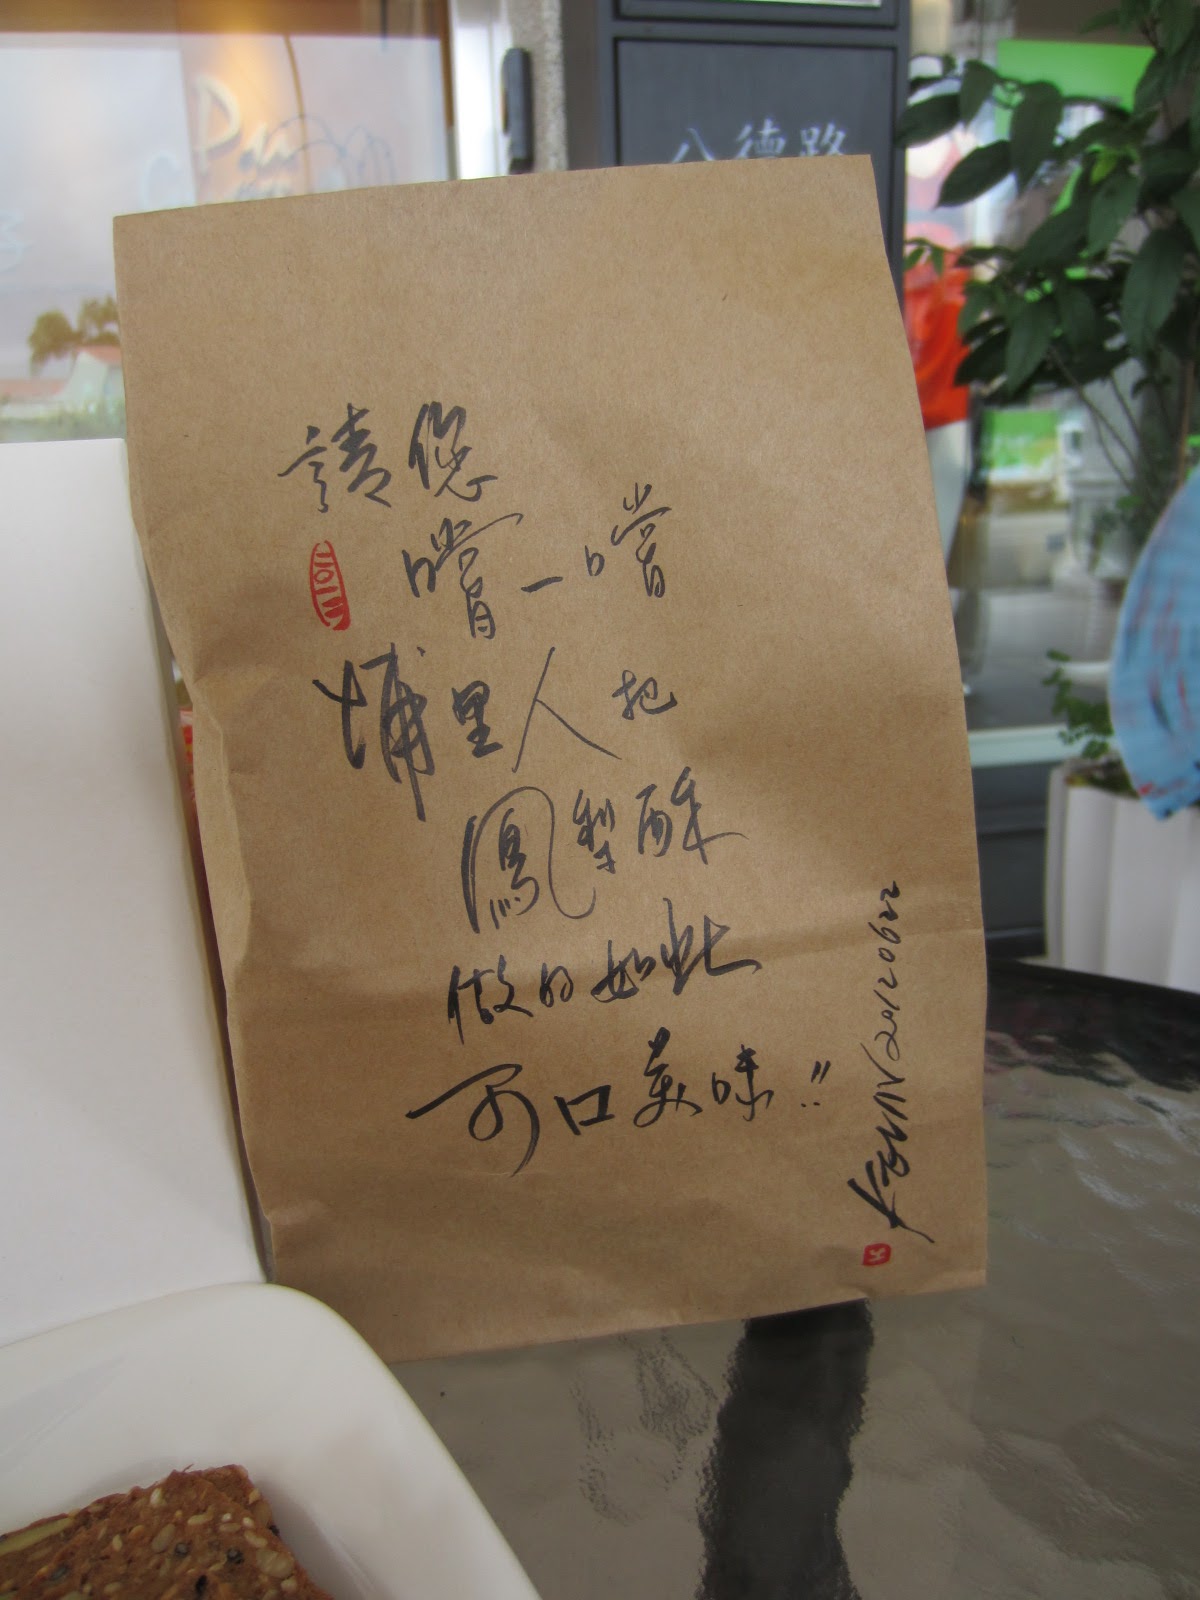 八德路
請您
嚐一嚐
埔里人把
鳳梨酥
做的如此
可口美味!!
KEVIN 20120622